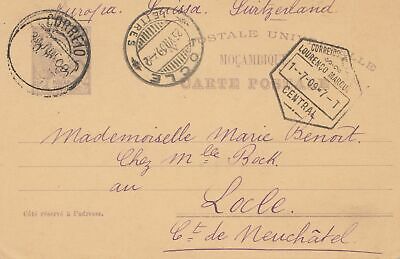 Europa, Suissa, Suitzerland
CORREIO
LOCLE
POSTALE UNIVERSELLE
MOÇAMBIQUE
CARTE POSTALE
CORREIOS
LOURENÇO MARQUES
1-7-09-7-1
CENTRAL
Mademoiselle Marie Benoit.
Chez Mlle Bock.
au
Locle.
Côté réservé à l'adresse.
Ct. de Neuchâtel.